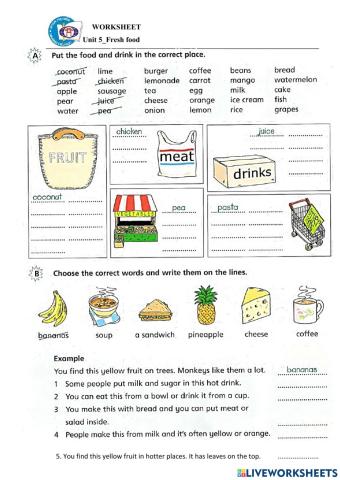 WORKSHEET
Unit 5_Fresh food
A Put the food and drink in the correct place.
coconut lime burger coffee beans bread
pasta chicken lemonade carrot mango watermelon
apple sausage tea egg milk cake
pear juice cheese orange ice cream fish
water pea onion lemon rice grapes
FRUIT
coconut
chicken
meat
juice
drinks
VEGETABLES
pea
pasta
B Choose the correct words and write them on the lines.
bananas soup a sandwich pineapple cheese coffee
Example
You find this yellow fruit on trees. Monkeys like them a lot. bananas
1 Some people put milk and sugar in this hot drink.
2 You can eat this from a bowl or drink it from a cup.
3 You make this with bread and you can put meat or
salad inside.
4 People make this from milk and it's often yellow or orange.
5. You find this yellow fruit in hotter places. It has leaves on the top.
LIVEWORKSHEETS